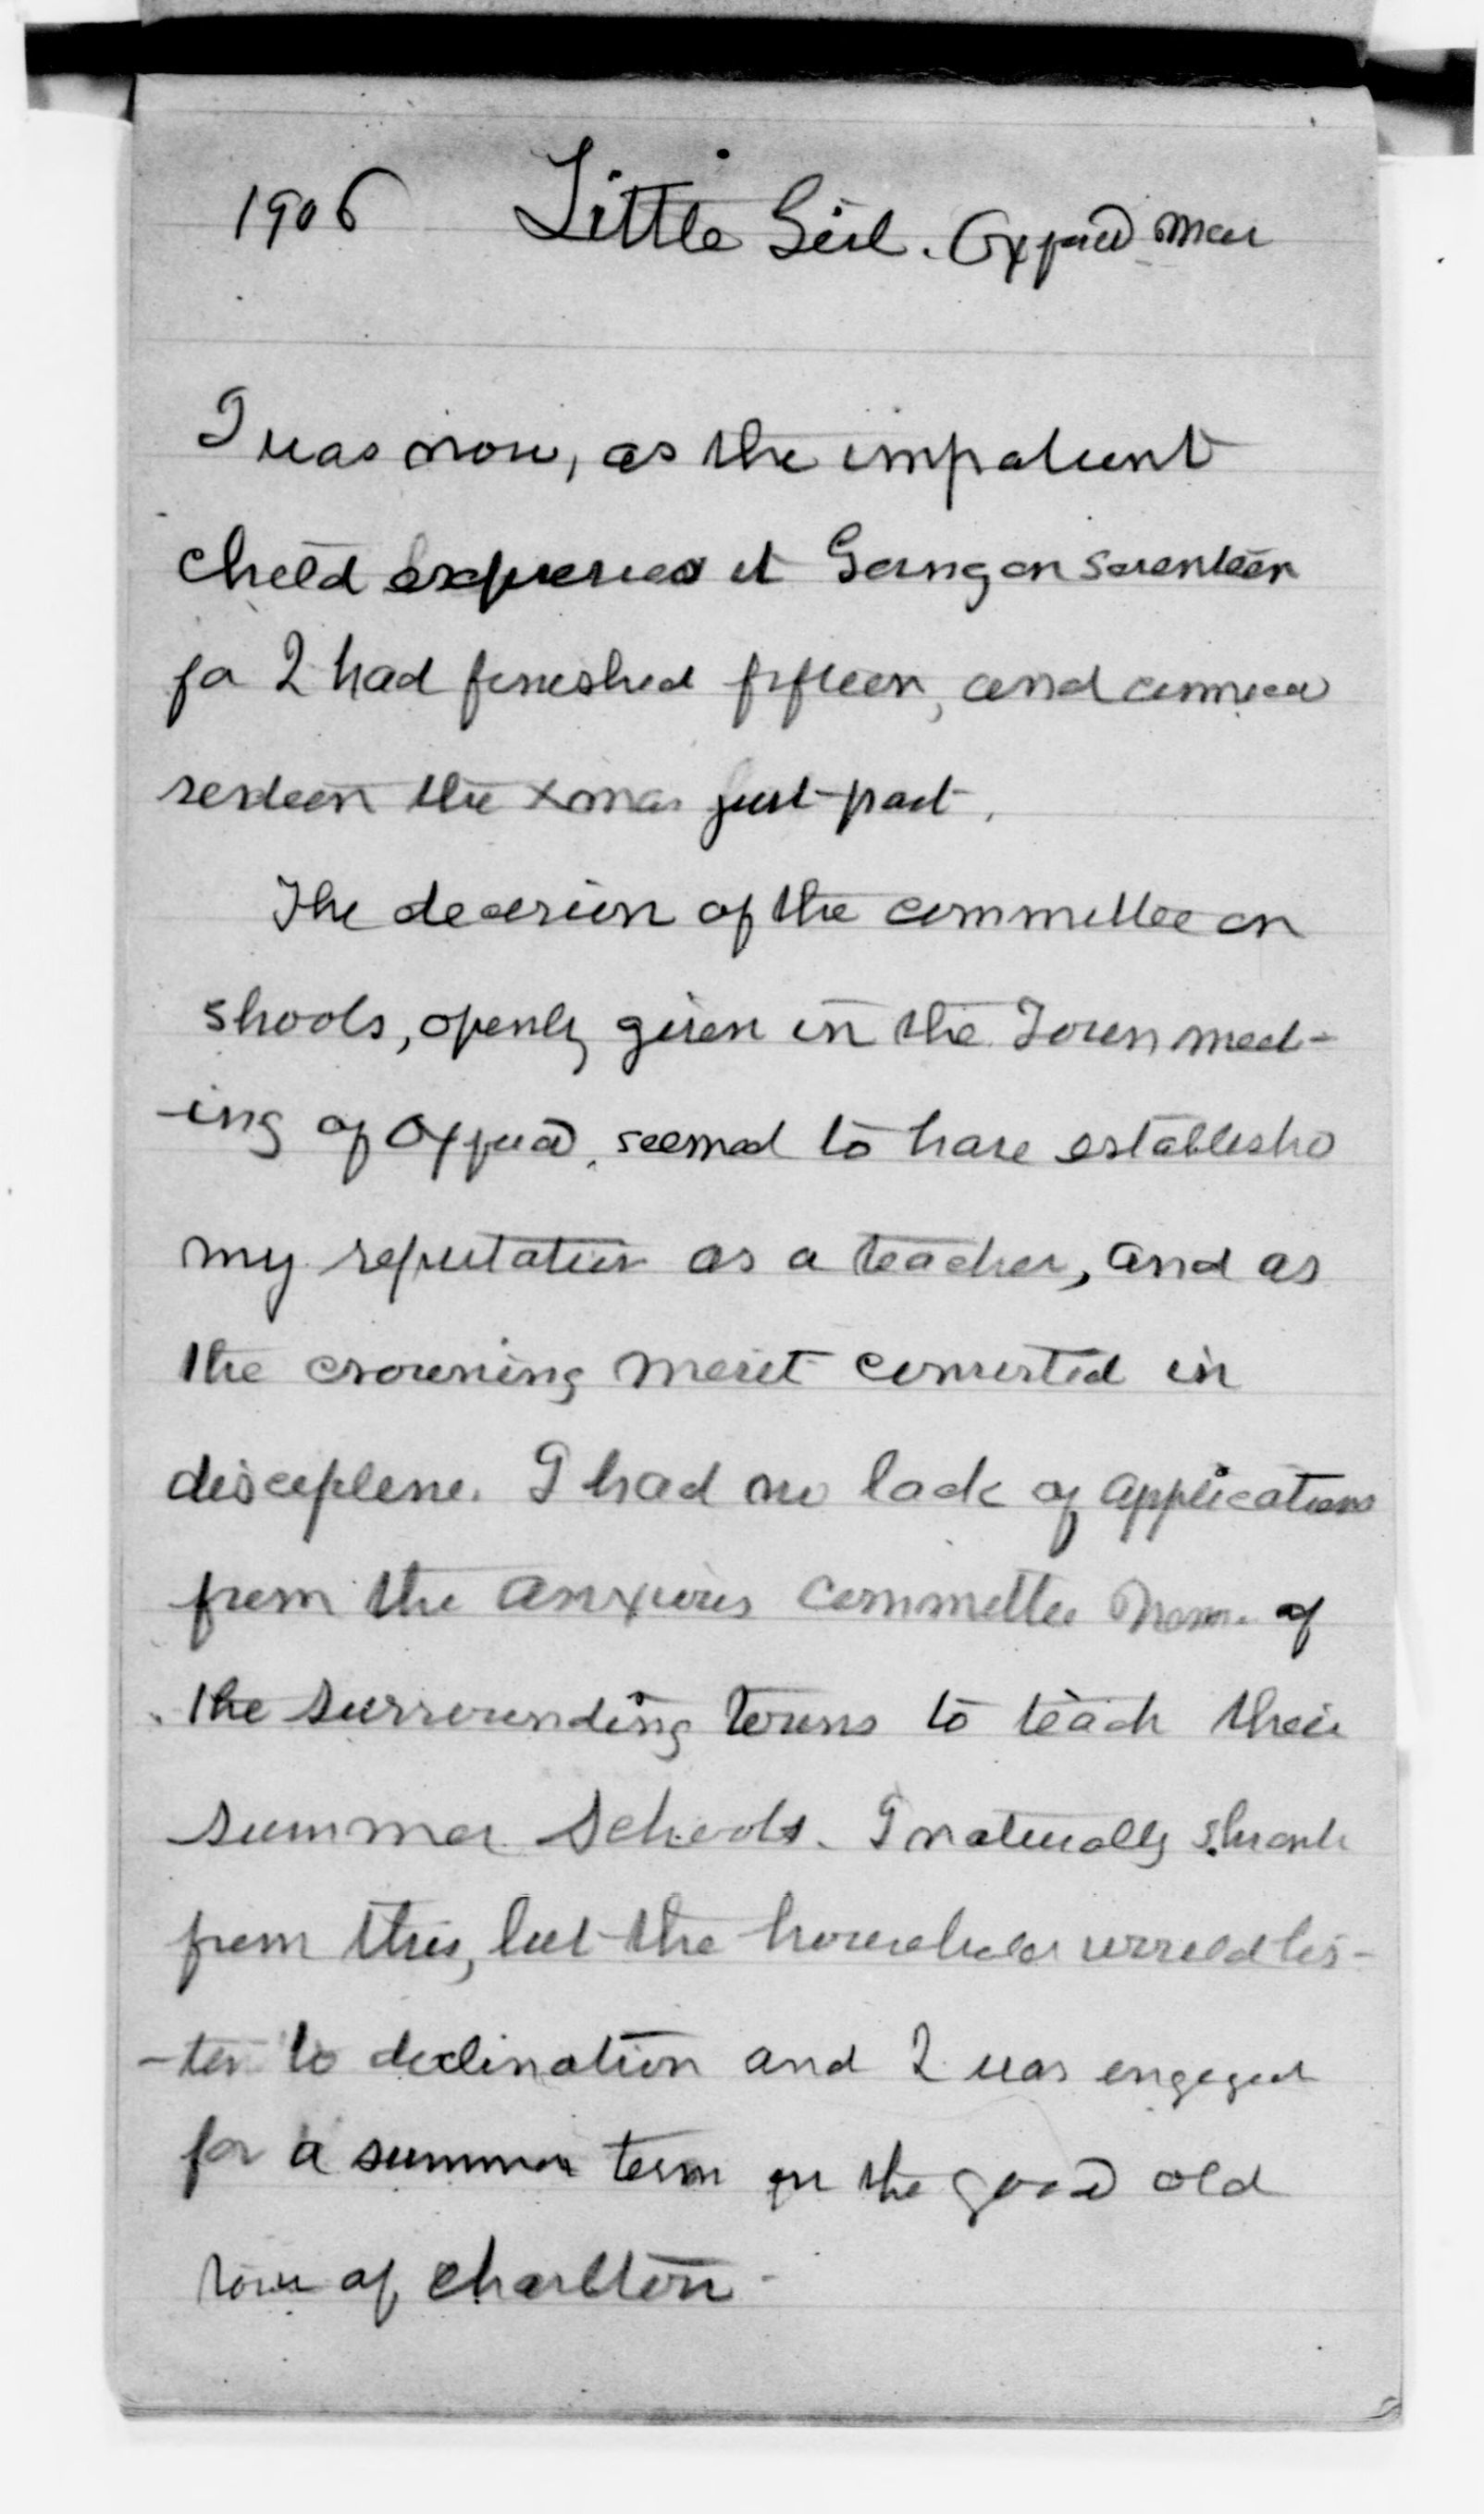 1906 Little Girl. Oxford Mas
I was now, as the impatient
child expresses it Going on seventeen
for I had finished fifteen, and
sixteen the Xmas just past.
The decision of the committee on
shools, openly given in the Town meet-
-ing of Oxford, seemed to have establishd
my reputation as a teacher, and as
the crowning merit consisted in
discipline. I had no lack of applications
from the anxious committee of
the surrounding towns to teach their
summer schools. I naturally shrank
from this, but the household would lis-
-ten to declination and I was engaged
for a summer term in the good old
town of Charlton -